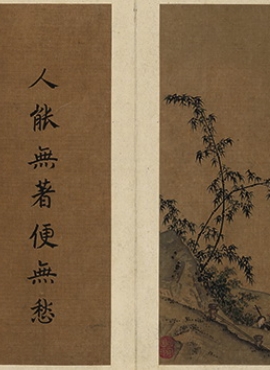 人能無著便無愁